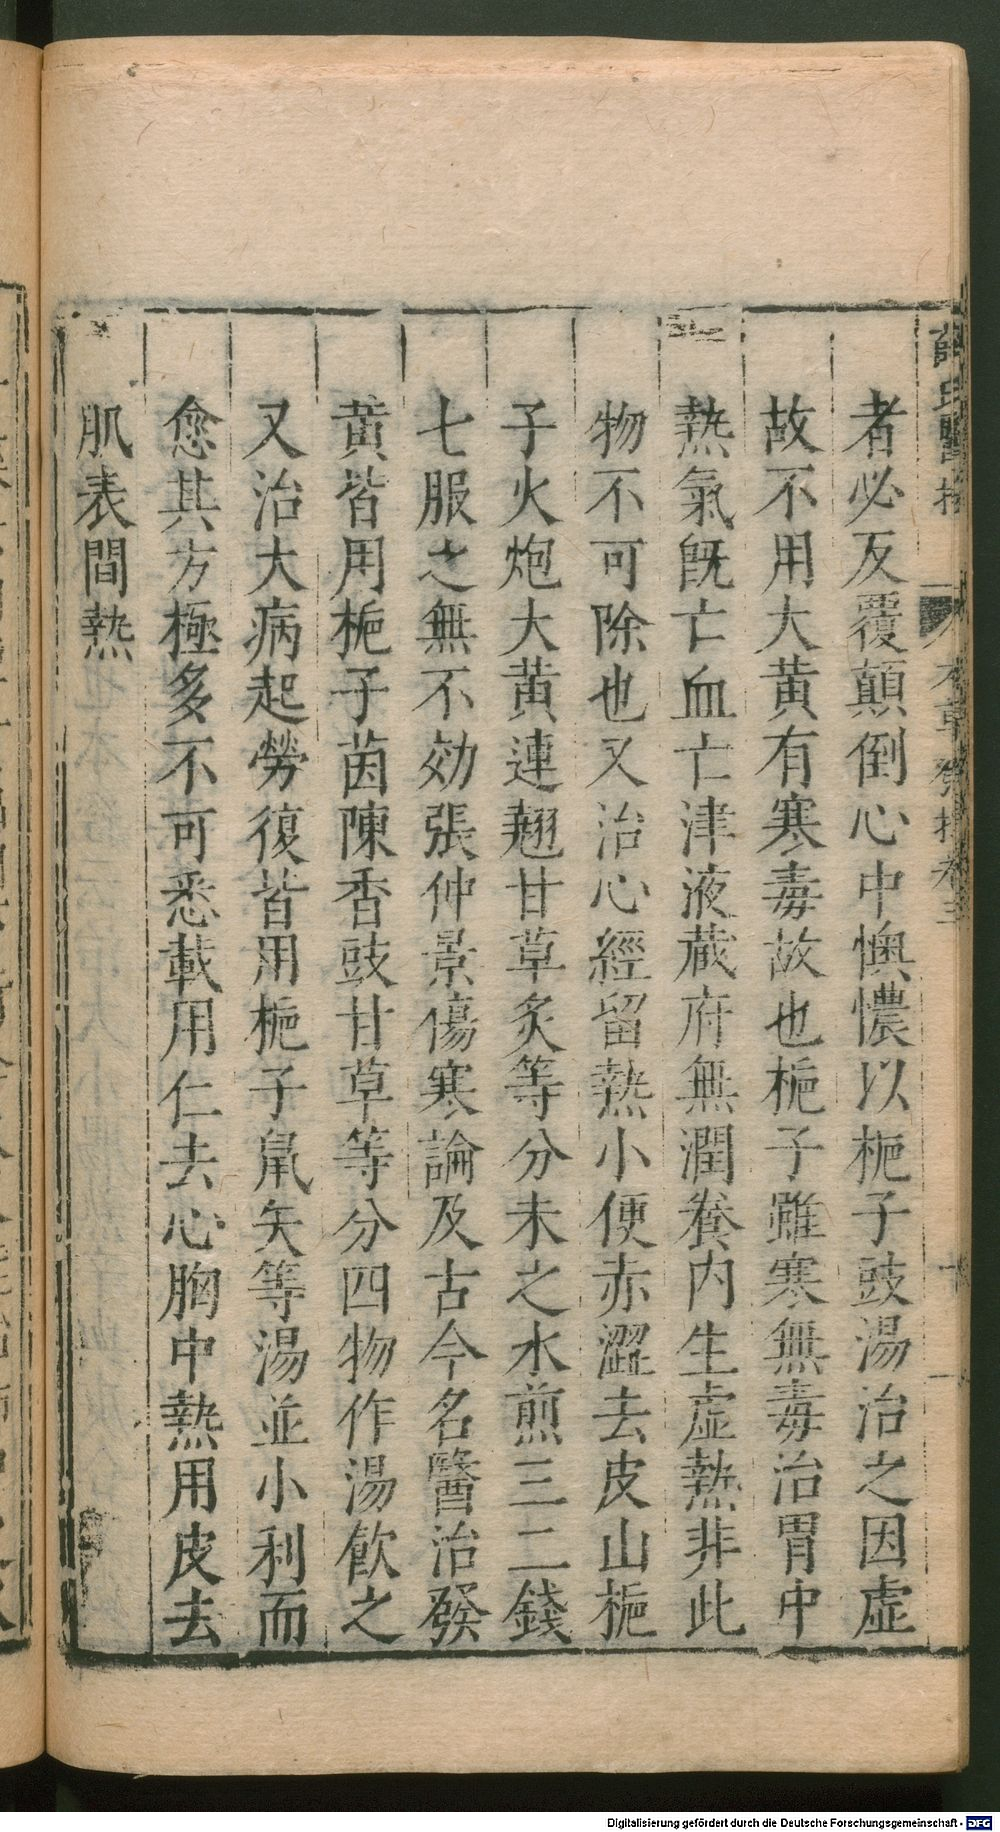 者必反覆顛倒心中懊憹以梔子豉湯治之因虛
故不用大黃有寒毒故也梔子雖寒無毒治胃中
熱氣旣亡血亡津液藏府無潤養內生虛熱非此
物不可除也又治心經留熱小便赤澀去皮山梔
子火炮大黃連翹甘草炙等分末之水煎三二錢
七服之無不効張仲景傷寒論及古今名醫治發
黃皆用梔子茵陳香豉甘草等分四物作湯飮之
又治大病起勞復皆用梔子鼠矢等湯並小利而
愈其方極多不可悉載用仁去心胸中熱用皮去
肌表間熱
本草發揮卷三
Digitalisierung gefördert durch die Deutsche Forschungsgemeinschaft - DFG